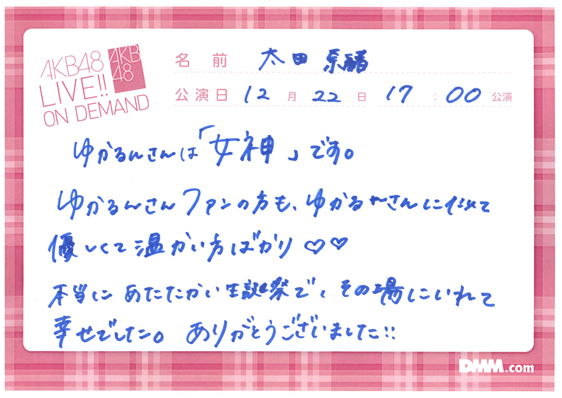 AKB48
LIVE!!
ON DEMAND
AKB
48
名前 太田 奈緒
公演日 12月22日 17:00公演
ゆかるんさんは「女神」です。
ゆかるんさんファンの方も、ゆかるんさんに似て
優しくて温かい方ばかり♡♡
本当に あたたかい生誕祭で、その場にいれて
幸せでした。 ありがとうございました!!
DMM.com